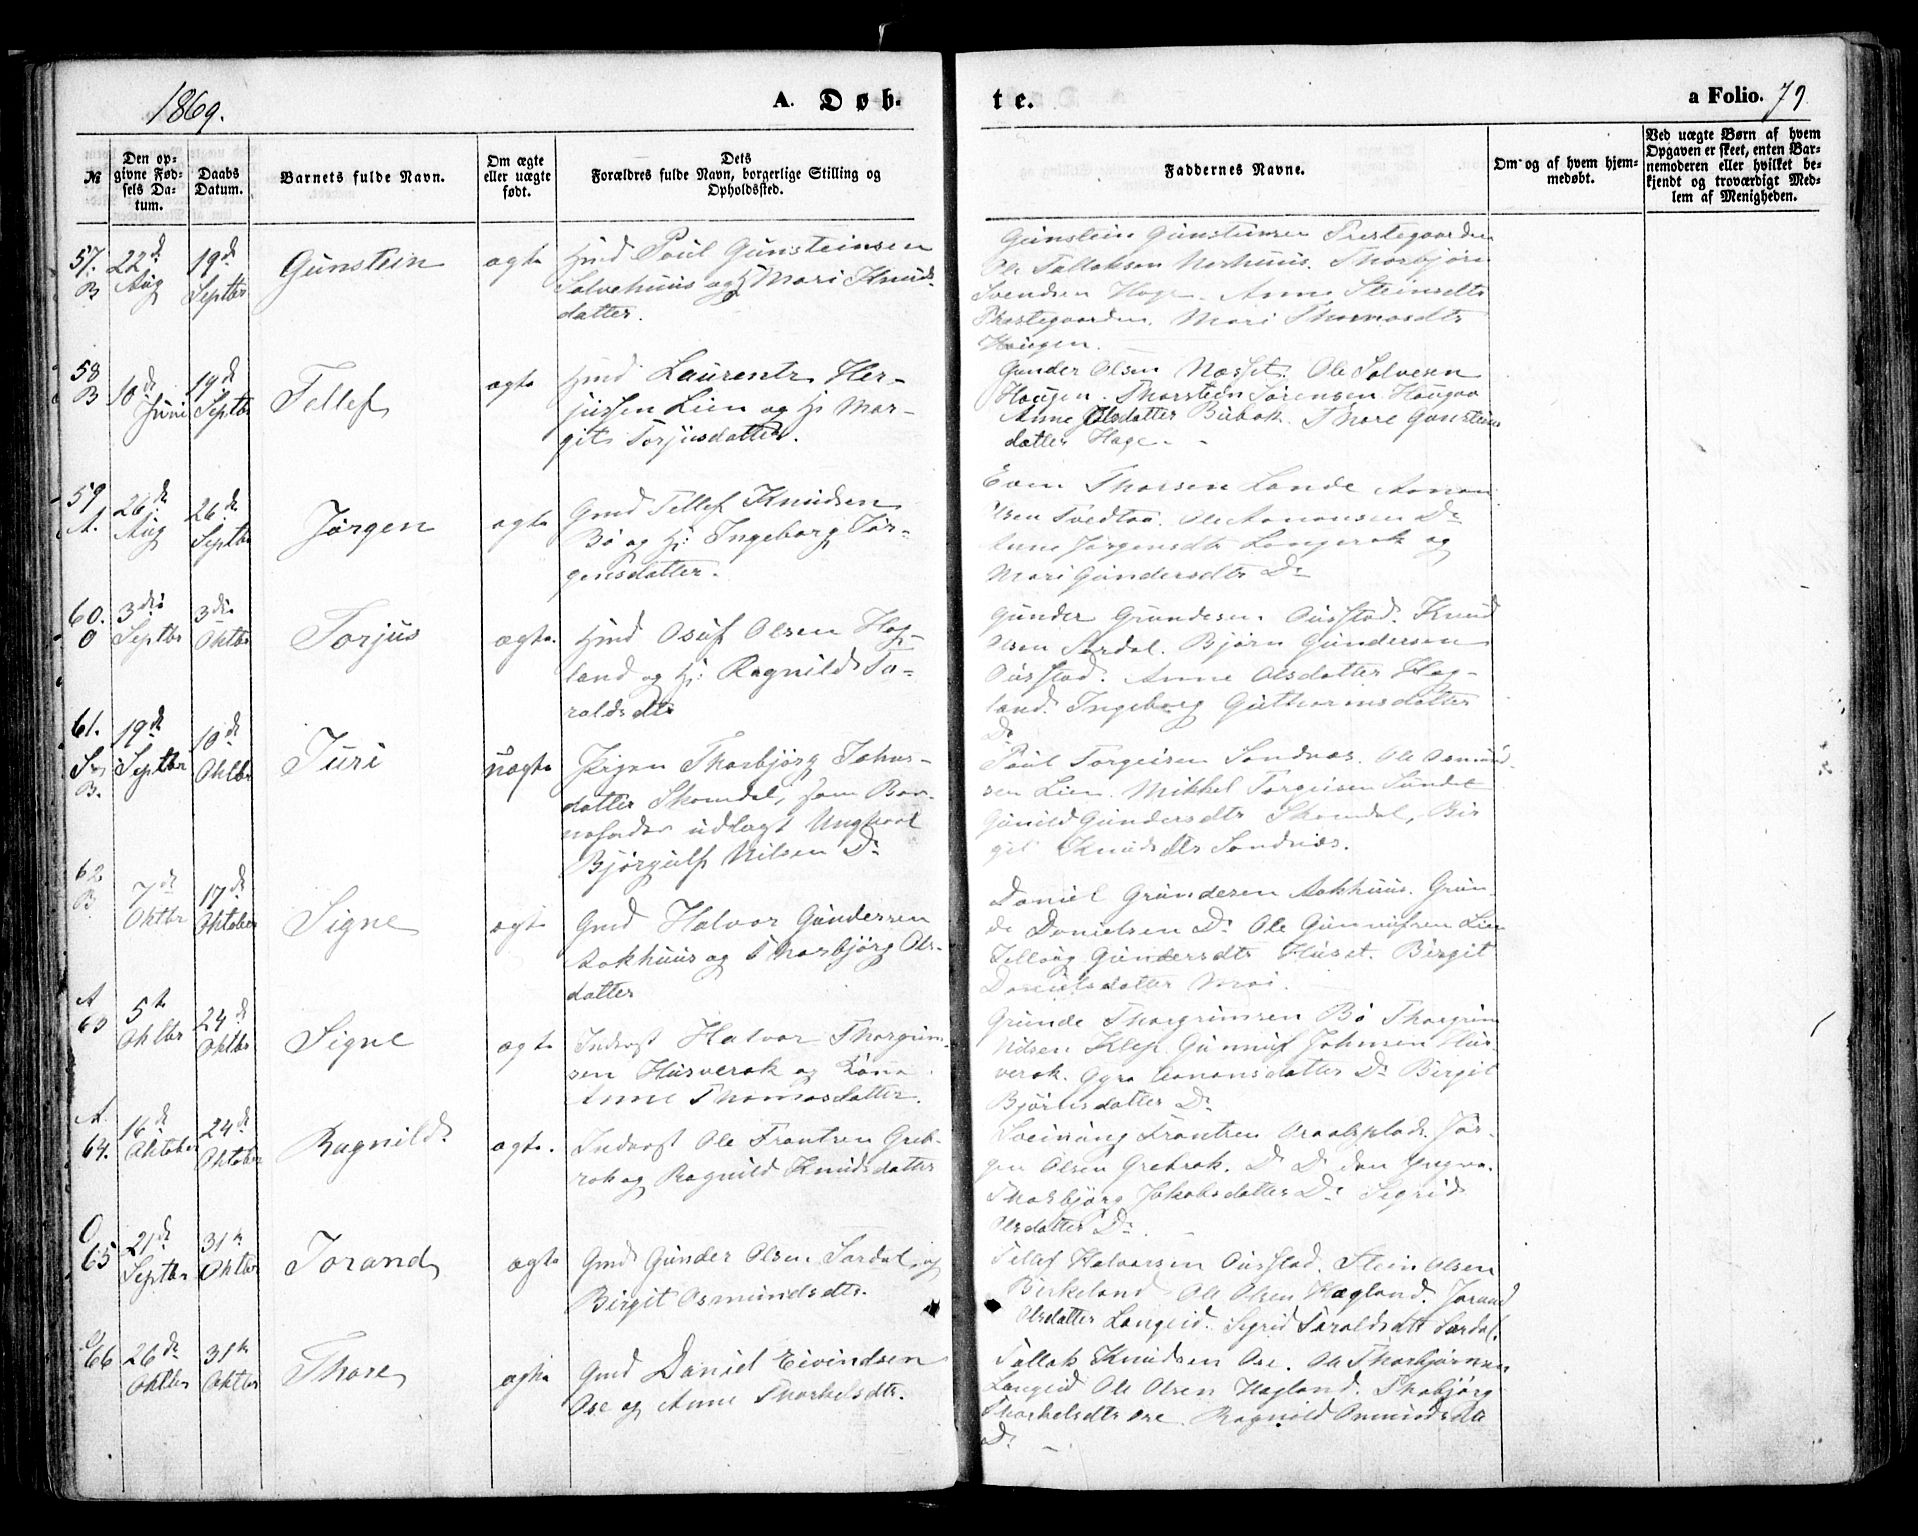 1869.
A. Døb-
te.
a Folio. 79
№
Den op-
givne Fød-
sels Da-
tum.
Daabs
Datum.
Barnets fulde Navn.
Om ægte
eller uægte
født.
Dets
Forældres fulde Navn, borgerlige Stilling og
Opholdssted.
Faddernes Navne.
Om og af hvem hjem-
medøbt.
Ved uægte Børn af hvem
Opgaven er skeet, enten Bar-
nemoderen eller hvilket be-
kjendt og troværdigt Med-
lem af Menigheden.
57. B
22d Aug
19d Septbr
Gunstein
ægte
Hmd Poul Gunsteinsen
Solvehuus og Hj Mari Knuds-
datter.
Gunstein Gunsteinsen Prestegaarden
Ole Tallaksen Norhuus. Thorbjørn
Svendsen Hage. Anne Steinsdtr
Præstegaarden. Mari Thomasdtr
Hougen.
58 B
10d Juni
19d Septbr
Tellef
ægte
Hmd Laurents Her-
jussen Lien og Hj Mar-
git Torjusdatter.
Gunder Olsen Næsset. Ole Solvesen
Hougen. Thorstein Sørensen Hougaa
Anne Olsdatter Bubak. Thore Gunsteins
datter Hage.
59 A.
26d Aug
26d Septbr
Jørgen
ægte
Gmd Tellef Knudsen
Bø og Hj: Ingeborg Jør-
gensdatter.
Even Thorsen Lande Aanon
Olsen Tvedtaa. Ole Aanonsen Do
Anne Jørgensdtr Langerak og
Mari Gundersdtr Do
60. O
3die Septbr
3die Oktbr
Torjus
ægte.
Hmd Osuf Olsen Hag-
land og Hj: Ragnild Ta-
raldsdtr
Gunder Gundersen Ousstad. Knud
Olsen Sordal. Bjørn Gundersen
Ousstad. Anne Olsdatter Hag-
land. Ingeborg Guthormsdatter
Do
61. B.
19d Septbr
10d Oktbr
Juri
uægte
Pigen Thorbjørg Johns-
datter Skomdal, som Bar-
nefader udlagt Ungkarl
Bjørgulf Nilsen Do
Poul Torgeisen Sandnæs. Ole Osmund-
sen Lien. Mikkel Torgeisen Sundet
Gunild Gundersdtr Skomdal, Bir
git Knudsdtr Sandnæs.
62 B
7d Oktbr
17d Oktober
Signe
ægte
Gmd Halvor Gundersen
Aakhuus og Thorbjørg Ols-
datter
Daniel Grundesen Aakhuus. Grun
de Danielsen Do Ole Gunnufsen Lien
Tellaug Gundersdtr Huset. Birgit
Danielsdatter Moi.
A 63
5te Oktbr
24d Oktbr
Signe
ægte
Inderst Halvor Thorgrim-
sen Husverak og Kone
Anne Thomasdatter.
Grunde Thorgrimsen Bø Thorgrim
Nilsen Klep. Gunnuf Johnsen Hus-
verak. Gyro Aanonsdatter Do Birgit
Bjørnsdatter Do
A. 64.
16d Oktober
24d Oktober
Ragnild
ægte.
Inderst Ole Frantsen Greb-
rok og Ragnild Knudsdatter
Sveinung Frantsen. Jør-
gen Olsen Grebrok. Do Do den Yngre.
Thorbjørg Jakobsdatter Do Sigrid
Olsdatter Do
O 65
21d Septbr
31te Oktbr
Torand
ægte
Gmd Gunder Olsen Sordal og
Birgit Osmundsdtr.
Tellef Halvorsen Ousstad. Stein Olsen
Birkeland Ole Olsen Hagland. Jorand
Olsdatter Langeid. Sigrid Taraldsdtr Sordal.
O 66
26d Oktbr
31te Oktbr
Thore
ægte
Gmd Daniel Eivindsen
Ose og Anne Thorkelsdtr.
Tallak Knudsen Ose. Ole Thorbjørnsen
Langeid Ole Olsen Hagland. Thobjørg
Thorkelsdtr Ose. Ragnild Osmundsdtr
Do